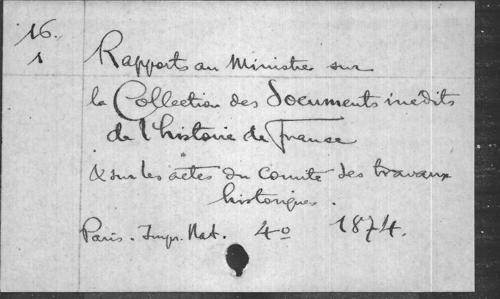 16.
1
Rapports au Ministre sur
la Collection des Documents inédits
de l'histoire de France
& sur les actes du comité des travaux
historiques.
Paris. Impr. Nat. 4o 1874.